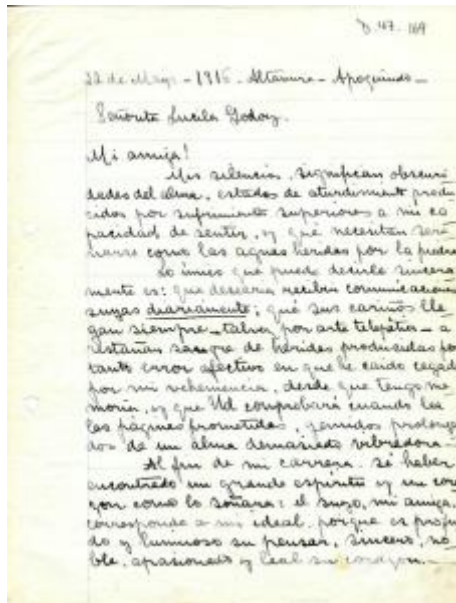 22 de Mayo - 1915 - Altamira - Apoquindo -
Señorita Lucila Godoy.
Mi amiga!
Mis silencios, significan obscuri
dades del alma, estados de aturdimiento produ
cidos por sufrimientos superiores a mi ca
pacidad de sentir, y que necesitan sere
narse como las aguas heridas por la piedra
Lo único que puedo decirle sincera
mente es: que desearía recibir comunicaciones
suyas diariamente; que sus cariños lle
gan siempre - talvez por arte telepática - a
restañar sangre de heridas producidas por
tanto error afectivo en que he caído cegada
por mi vehemencia, desde que tengo me
moria, y que Ud comprobará cuando lea
las páginas prometidas, gemidos prolonga
dos de un alma demasiado vibradora -
Al fin de mi carrera sé haber
encontrado un grande espíritu y un cora
zon como lo soñara: el suyo, mi amiga,
corresponde a mi ideal, porque es profun
do y luminoso su pensar, sincero, no
ble, apasionado y leal su corazon. -